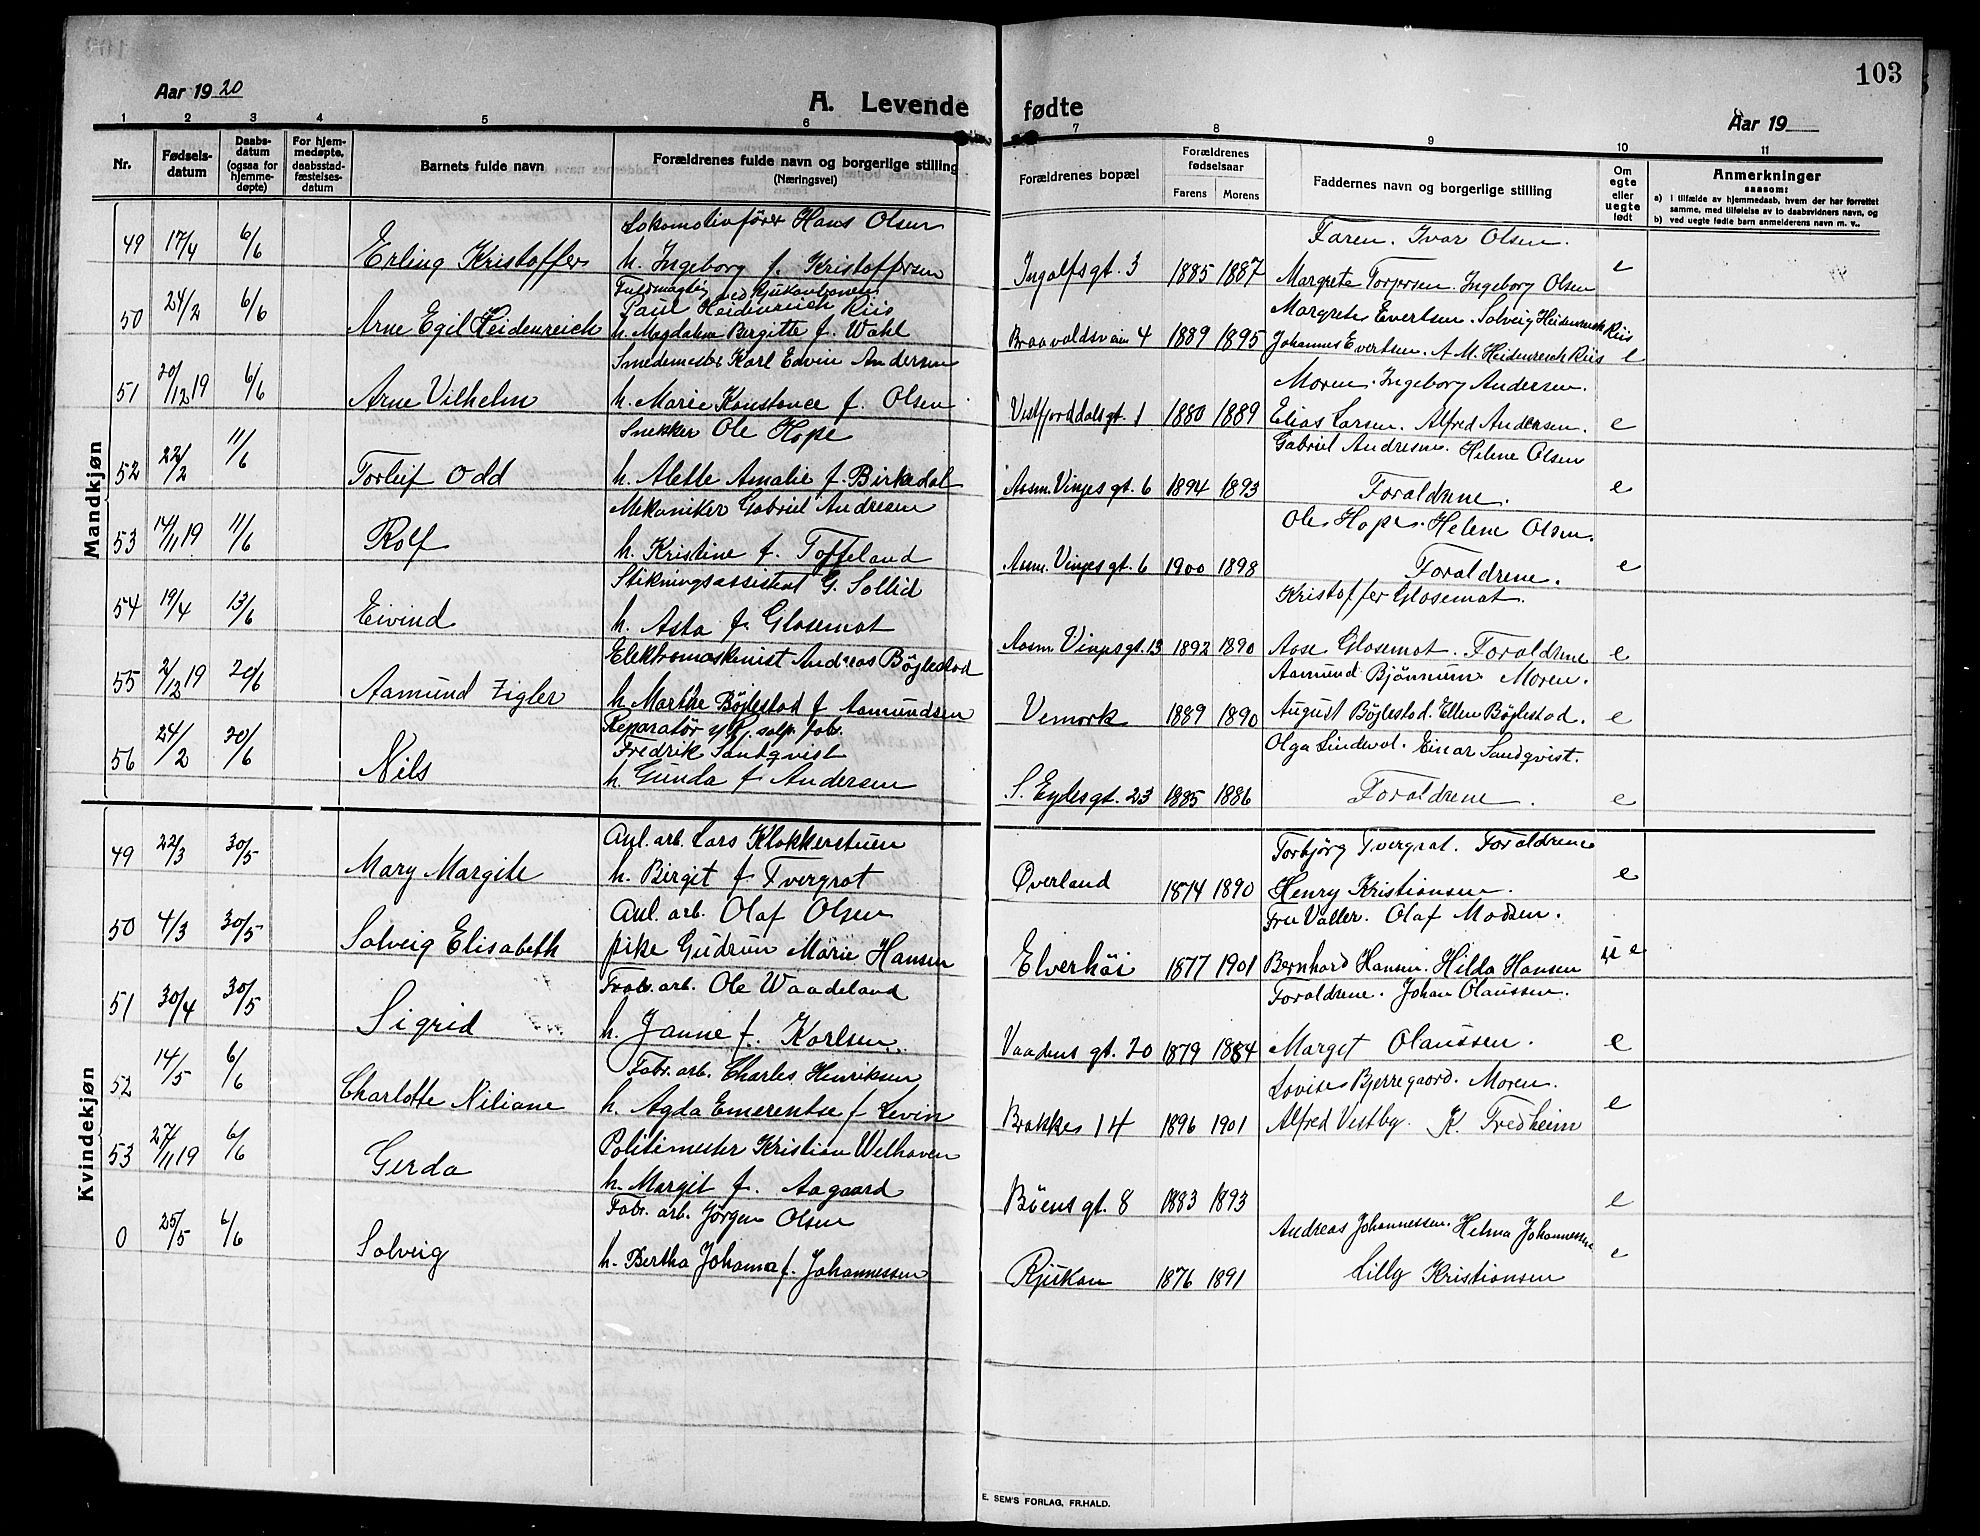 103
Aar 1920
A. Levende fødte
Aar 19
1 2 3 4 5 6 7 8 9 10 11
Nr.
Fødselsdatum
Daabsdatum (ogsaa for hjemmedøpte)
For hjemmedøpte, daabsstadfæstelsesdatum
Barnets fulde navn
Forældrenes fulde navn og borgerlige stilling
(Næringsvei)
Forældrenes bopæl
Forældrenes fødselsaar
Farens Morens
Faddernes navn og borgerlige stilling
Om egte eller uegte født
Anmerkninger
saasom:
a) i tilfælde av hjemmedaab, hvem der har forrettet samme, med tilføielse av to daabsvidners navn, og
b) ved uegte fødte barn anmelderens navn m. v..
Mandkjøn
Lokomotivfører Hans Olsen Faren. Ivar Olsen.
49 17/4 6/6 Erling Kristoffer h. Ingeborg f. Kristoffersen Ingolfsgt. 3 1885 1887 Margrete Torgersen. Ingeborg Olsen e
Fuldmægtig ved Rjukanbanen
Paul Heidenreich Riis Margrete Evertsen. Solveig Heidenreich Riis
50 24/2 6/6 Arne Egil Heidenreich h. Magdalena Bergitte f. Wahl Braavoldsveien 4 1889 1895 Johannes Evertsen. A. M. Heidenreich Riis e
Smedemester Karl Edvin Andersen Moren. Ingeborg Andersen.
51 20/12 19 6/6 Arne Vilhelm h. Marie Konstance f. Olsen. Vestfjorddalsgt. 1 1880 1889 Elias Larsen. Alfred Andersen. e
Snekker Ole Hope Gabriel Andresen. Helene Olsen
52 22/2 11/6 Torleif Odd h. Alette Amalie f. Birkedal Aasm. Vinjes gt. 6 1894 1893 Foraldrene. e
Mekaniker Gabriel Andresen Ole Hope. Helene Olsen.
53 14/11 19 11/6 Rolf h. Kristine f. Toffeland Aasm. Vinjes gt. 6 1900 1898 Foraldrene. e
Stikningsassistent G. Sollid Kristoffer Glosemot.
54 19/4 13/6 Eivind h. Asta f. Glosemot Aasm Vinjes gt. 13 1892 1890 Aase Glosemot. Foraldrene e
Elektromaskinist Andreas Bøylestad Aamund Bjønnum. Moren.
55 2/12 19 20/6 Aamund Zigler h. Marthe Bøylestad f Aamundsen Vemork 1889 1890 August Bøylestad. Ellen Bøylestad. e
Reparatør v/Rj. salp. fab.
Fredrik Sandqvist Olga Lindeval. Einar Sandqvist.
56 24/2 20/6 Nils h. Gunda f. Andersen S. Eydes gt. 23 1885 1886 Foraldrene. e
Kvindekjøn
Anl. arb. Lars Klokkerstuen Torbjørg Tvergrot. Foraldrene
49 22/3 30/5 Mary Margite h. Birgit f Tvergrot Øverland 1874 1890 Henry Kristiansen. e
Anl. arb. Olaf Olsen Fru Valler. Olaf Madsen.
50 4/3 30/5 Solveig Elisabeth pike Gudrun Marie Hansen Elverhøi 1877 1901 Bernhard Hansen. Hilda Hansen u e
Fab. arb. Ole Waadeland Foraldrene. Johan Olaussen.
51 30/4 30/5 Sigrid h. Janne f. Karlsen. Vaadens gt. 20 1879 1884 Marget Olaussen. e
Fabr. arb. Charles Henriksen Lovise Bjerregaard. Moren.
52 14/5 6/6 Charlotte Niliane h. Agda Emerentse f Levin Brakke 14 1896 1901 Alfred Vestby. K. Fredheim e
Politimester Kristian Welhaven
53 27/11 19 6/6 Gerda h. Margit f. Aagaard Bøens gt. 8 1883 1893 e
Fabr. arb. Jørgen Olsen Andreas Johannessen. Helma Johannessen
0 25/5 6/6 Solveig h. Bertha Johanna f. Johannessen Rjukan 1876 1891 Lilly Kristiansen e
E. SEM'S FORLAG, FR.HALD.